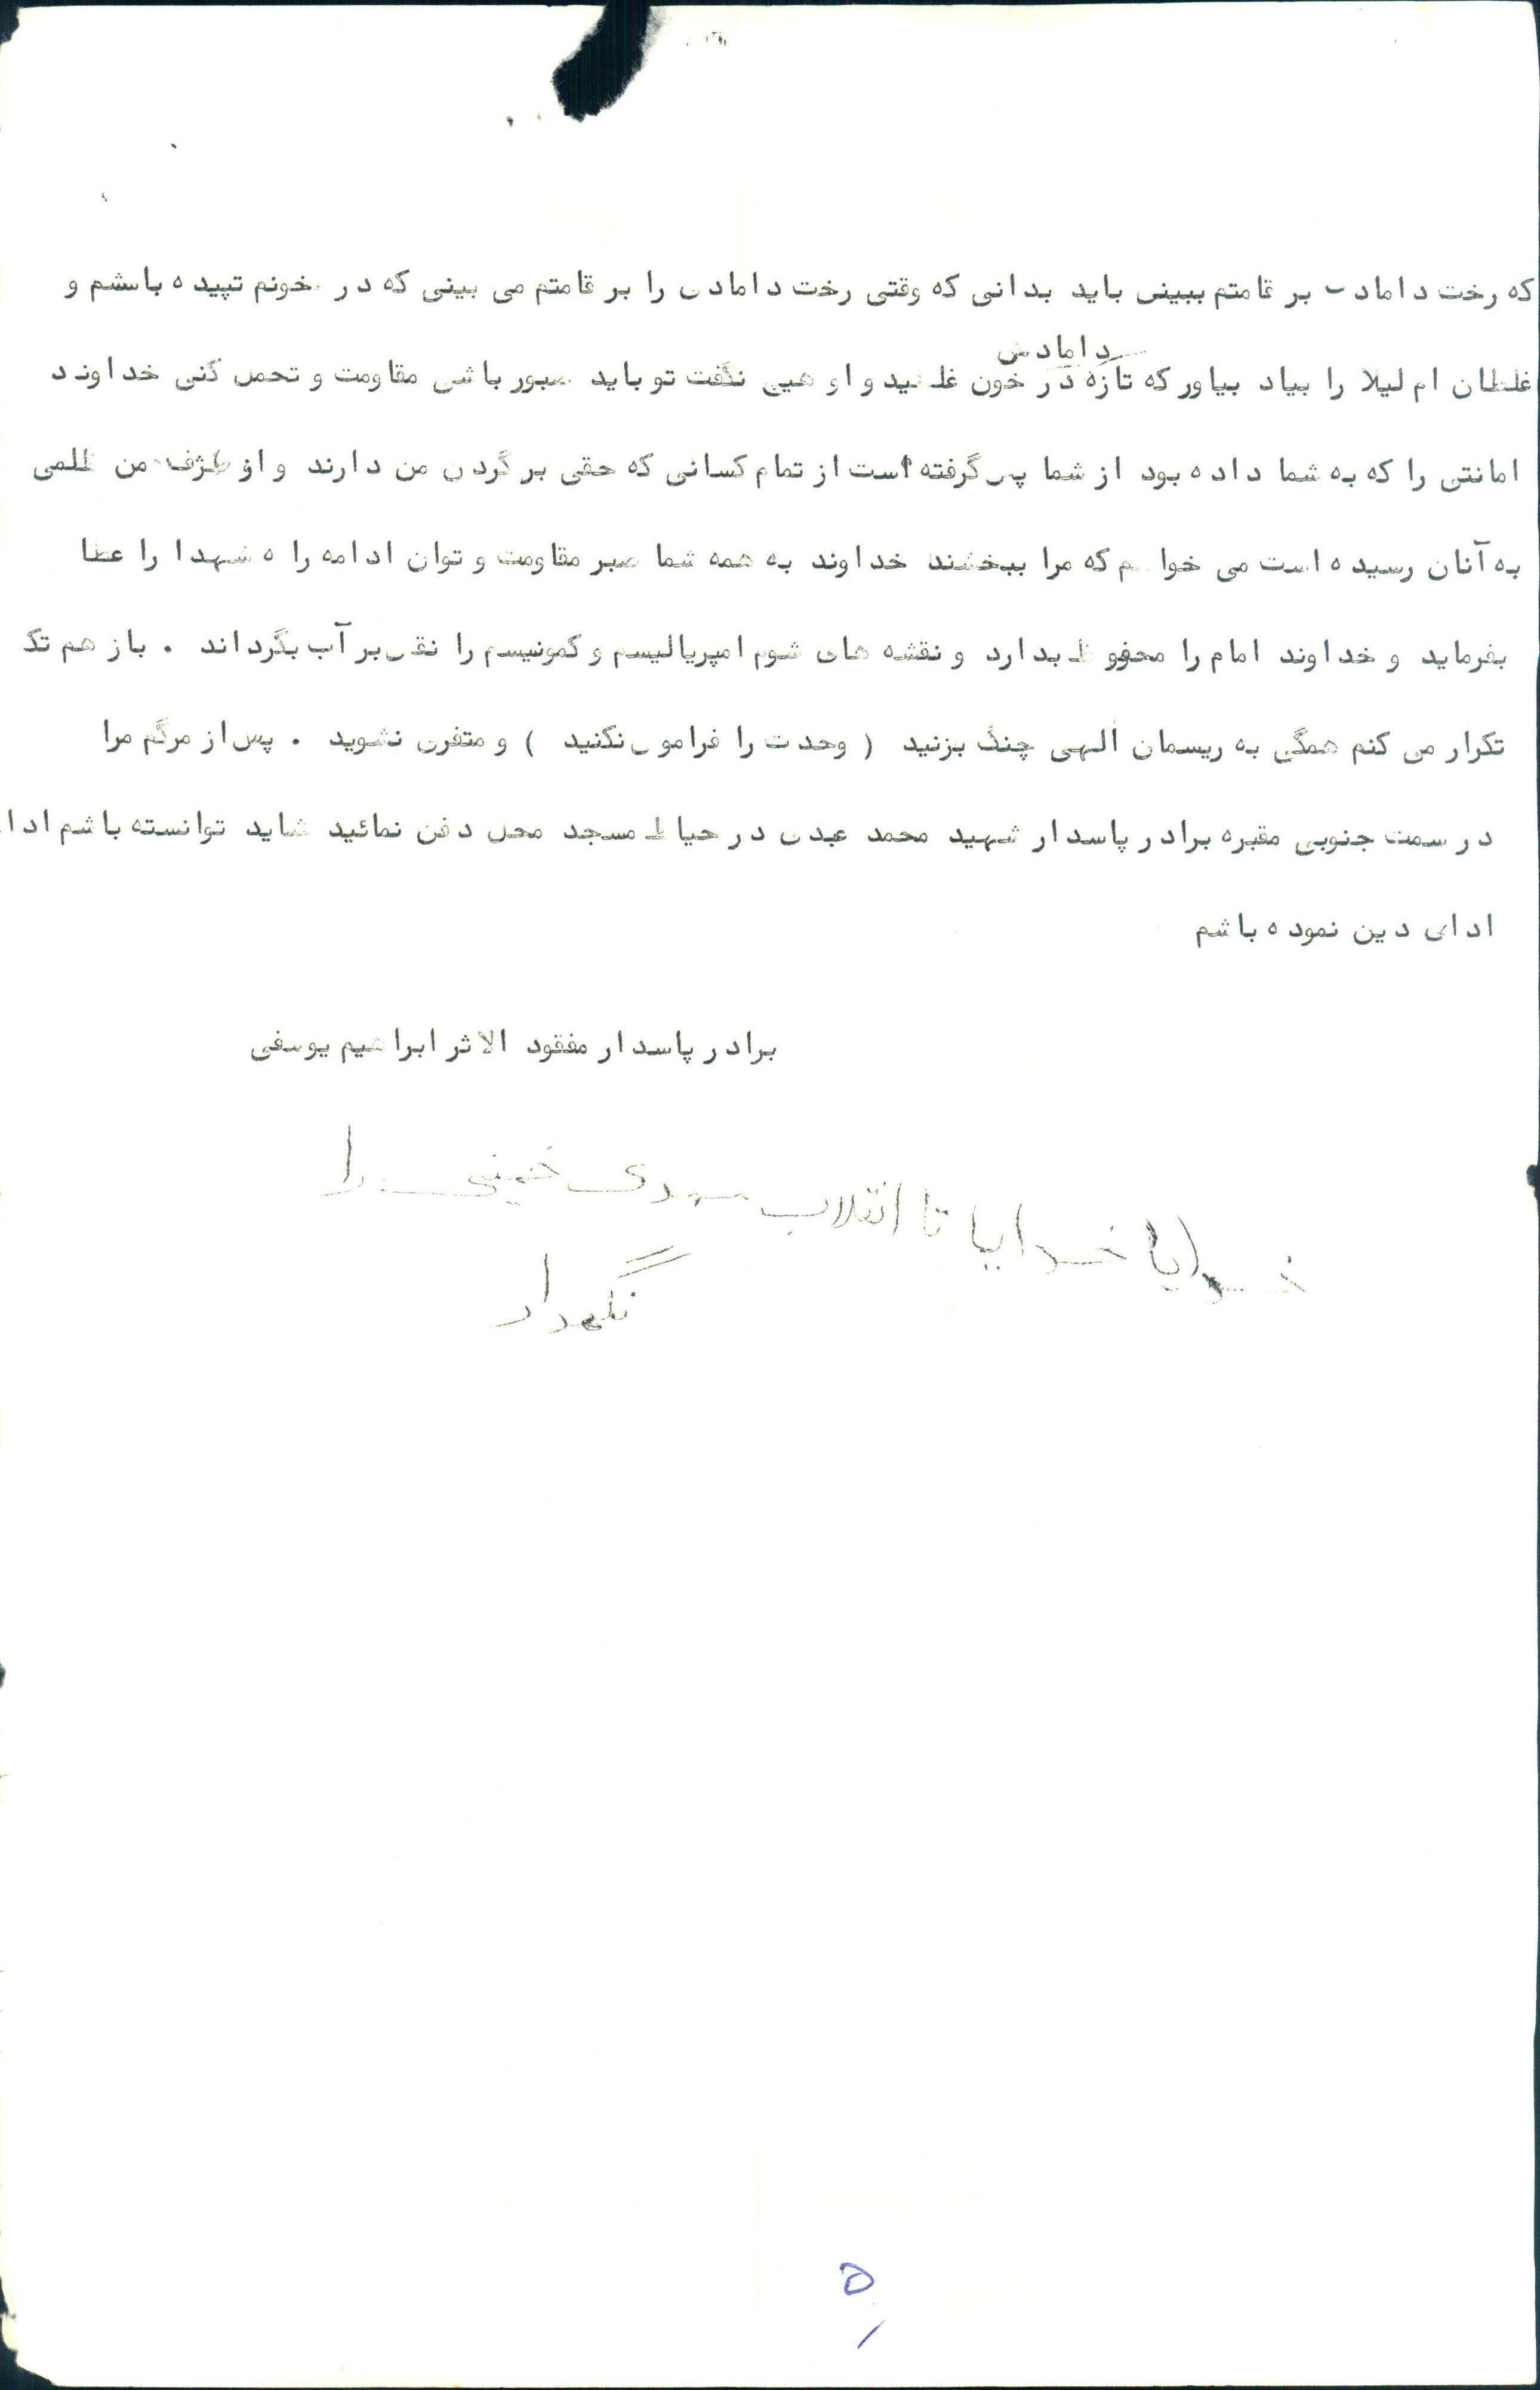 که رخت دامادی بر قامتم ببینی باید بدانی که وقتی رخت دامادی را بر قامتم می بینی که در خونم تپیده باشم و
دامادش
غلطان ام لیلا را بیاد بیاور که تازه در خون غلطید و او هیچ نگفت تو باید صبور باشی مقاومت و تحمل کنی خداوند
امانتی را که به شما داده بود از شما پس گرفته است از تمام کسانی که حقی بر گردن من دارند و از طرف من ظلمی
به آنان رسیده است می خواهم که مرا ببخشند خداوند به همه شما صبر مقاومت و توان ادامه راه شهدا را عطا
بفرماید و خداوند امام را محفوظ بدارد و نقشه های شوم امپریالیسم و کمونیسم را نقش بر آب بگرداند . باز هم تک
تکرار می کنم همگی به ریسمان الهی چنگ بزنید ( وحدت را فراموش نکنید ) و متفرق نشوید . پس از مرگم مرا
در سمت جنوبی مقبره برادر پاسدار شهید محمد عبدی در حیاط مسجد محل دفن نمائید شاید توانسته باشم ادا
ادای دین نموده باشم
برادر پاسدار مفقود الاثر ابراهیم یوسفی
خدایا خدایا تا انقلاب مهدی خمینی را
نگهدار
۵